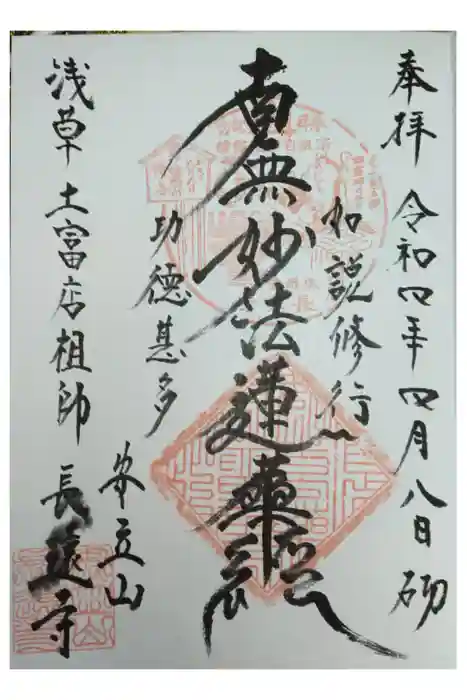 奉拝 令和四年四月八日 砌
如説修行
南無妙法蓮華経
功徳甚多
安立山
長遠寺
浅草 土富店祖師